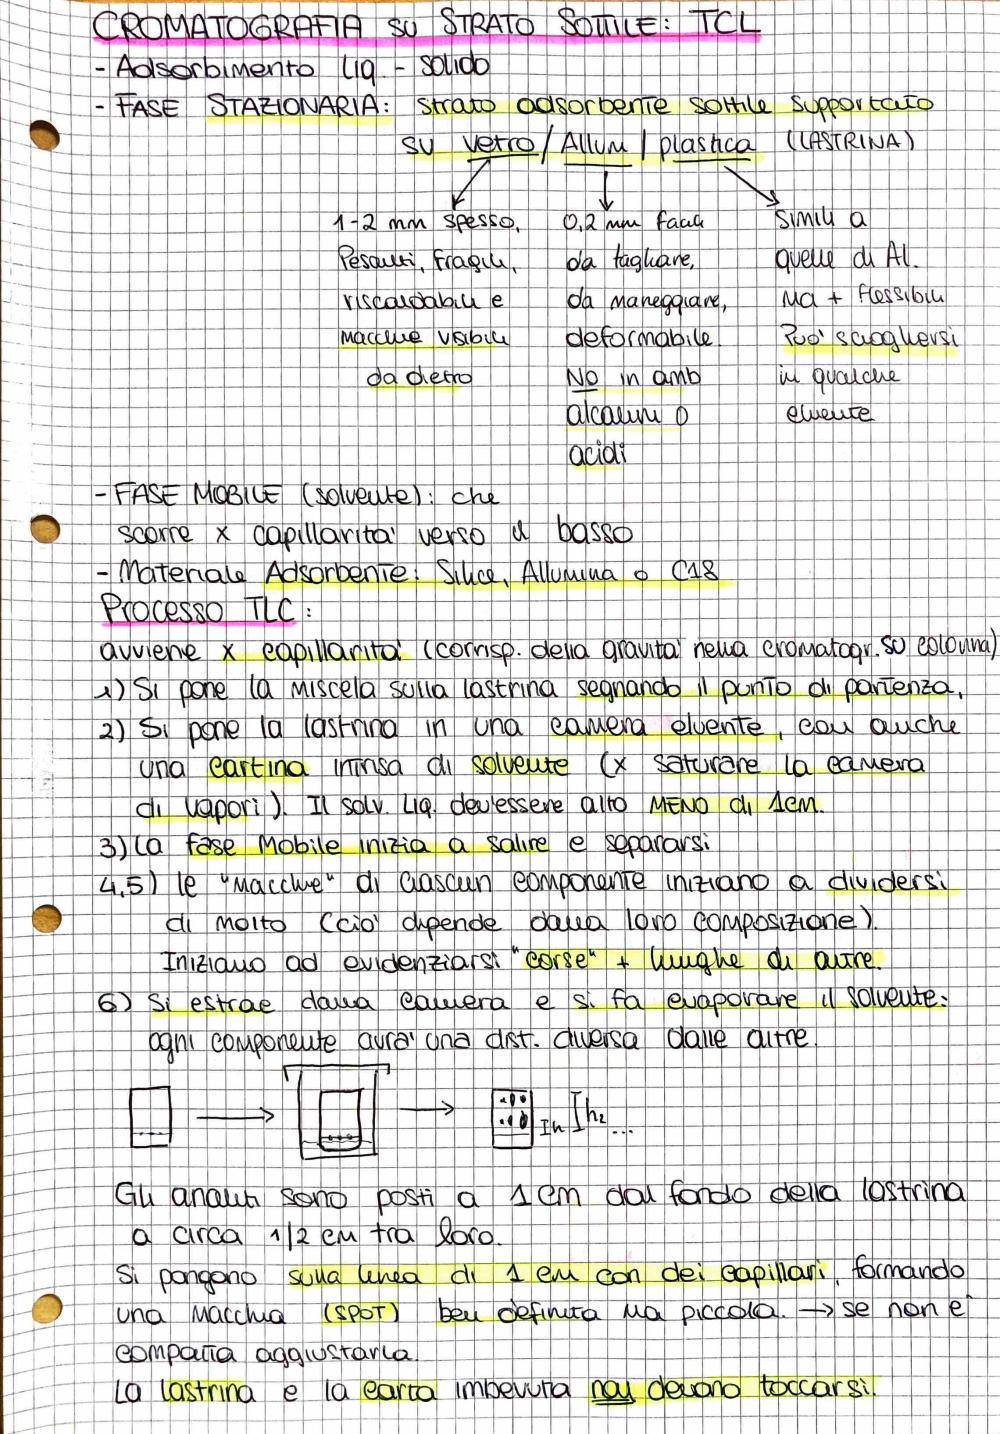 CROMATOGRAFIA SU STRATO SOTTILE: TCL
- Adsorbimento Liq. - solido
- FASE STAZIONARIA: strato adsorbente sottile supportato
su vetro / Allum / plastica (LASTRINA)
1-2 mm spesso, 0,2 mm facili simili a
Pesanti, fragili, da tagliare, quelle di Al.
riscaldabili e da maneggiare, Ma + flessibili
macchie visibili deformabile. Può sciogliersi
da dietro NO in amb in qualche
alcalini o eluente
acidi
- FASE MOBILE (solvente): che
scorre x capillarità verso il basso
- Materiale Adsorbente: Silice, Allumina o C18
Processo TLC:
avviene x capillarità (corrisp. della gravità nella cromatogr. su colonna)
1) Si pone la miscela sulla lastrina segnando il punto di partenza.
2) Si pone la lastrina in una camera eluente, con anche
una cartina intrisa di solvente (x saturare la camera
di vapori). Il solv. Liq. dev'essere alto MENO di 1cm.
3) La fase Mobile inizia a salire e separarsi
4,5) le "macchie" di ciascun componente iniziano a dividersi
di molto (ciò dipende dalla loro composizione).
Iniziano ad evidenziarsi "corse" + lunghe di altre.
6) Si estrae dalla camera e si fa evaporare il solvente:
ogni componente avrà una dist. diversa dalle altre.
Ih Ih2 ...
Gli analiti sono posti a 1 cm dal fondo della lastrina
a circa 1/2 cm tra loro.
Si pongono sulla linea di 1 cm con dei capillari, formando
una macchia (SPOT) ben definita ma piccola. → se non è
compatta aggiustarla.
La lastrina e la carta imbevuta non devono toccarsi.